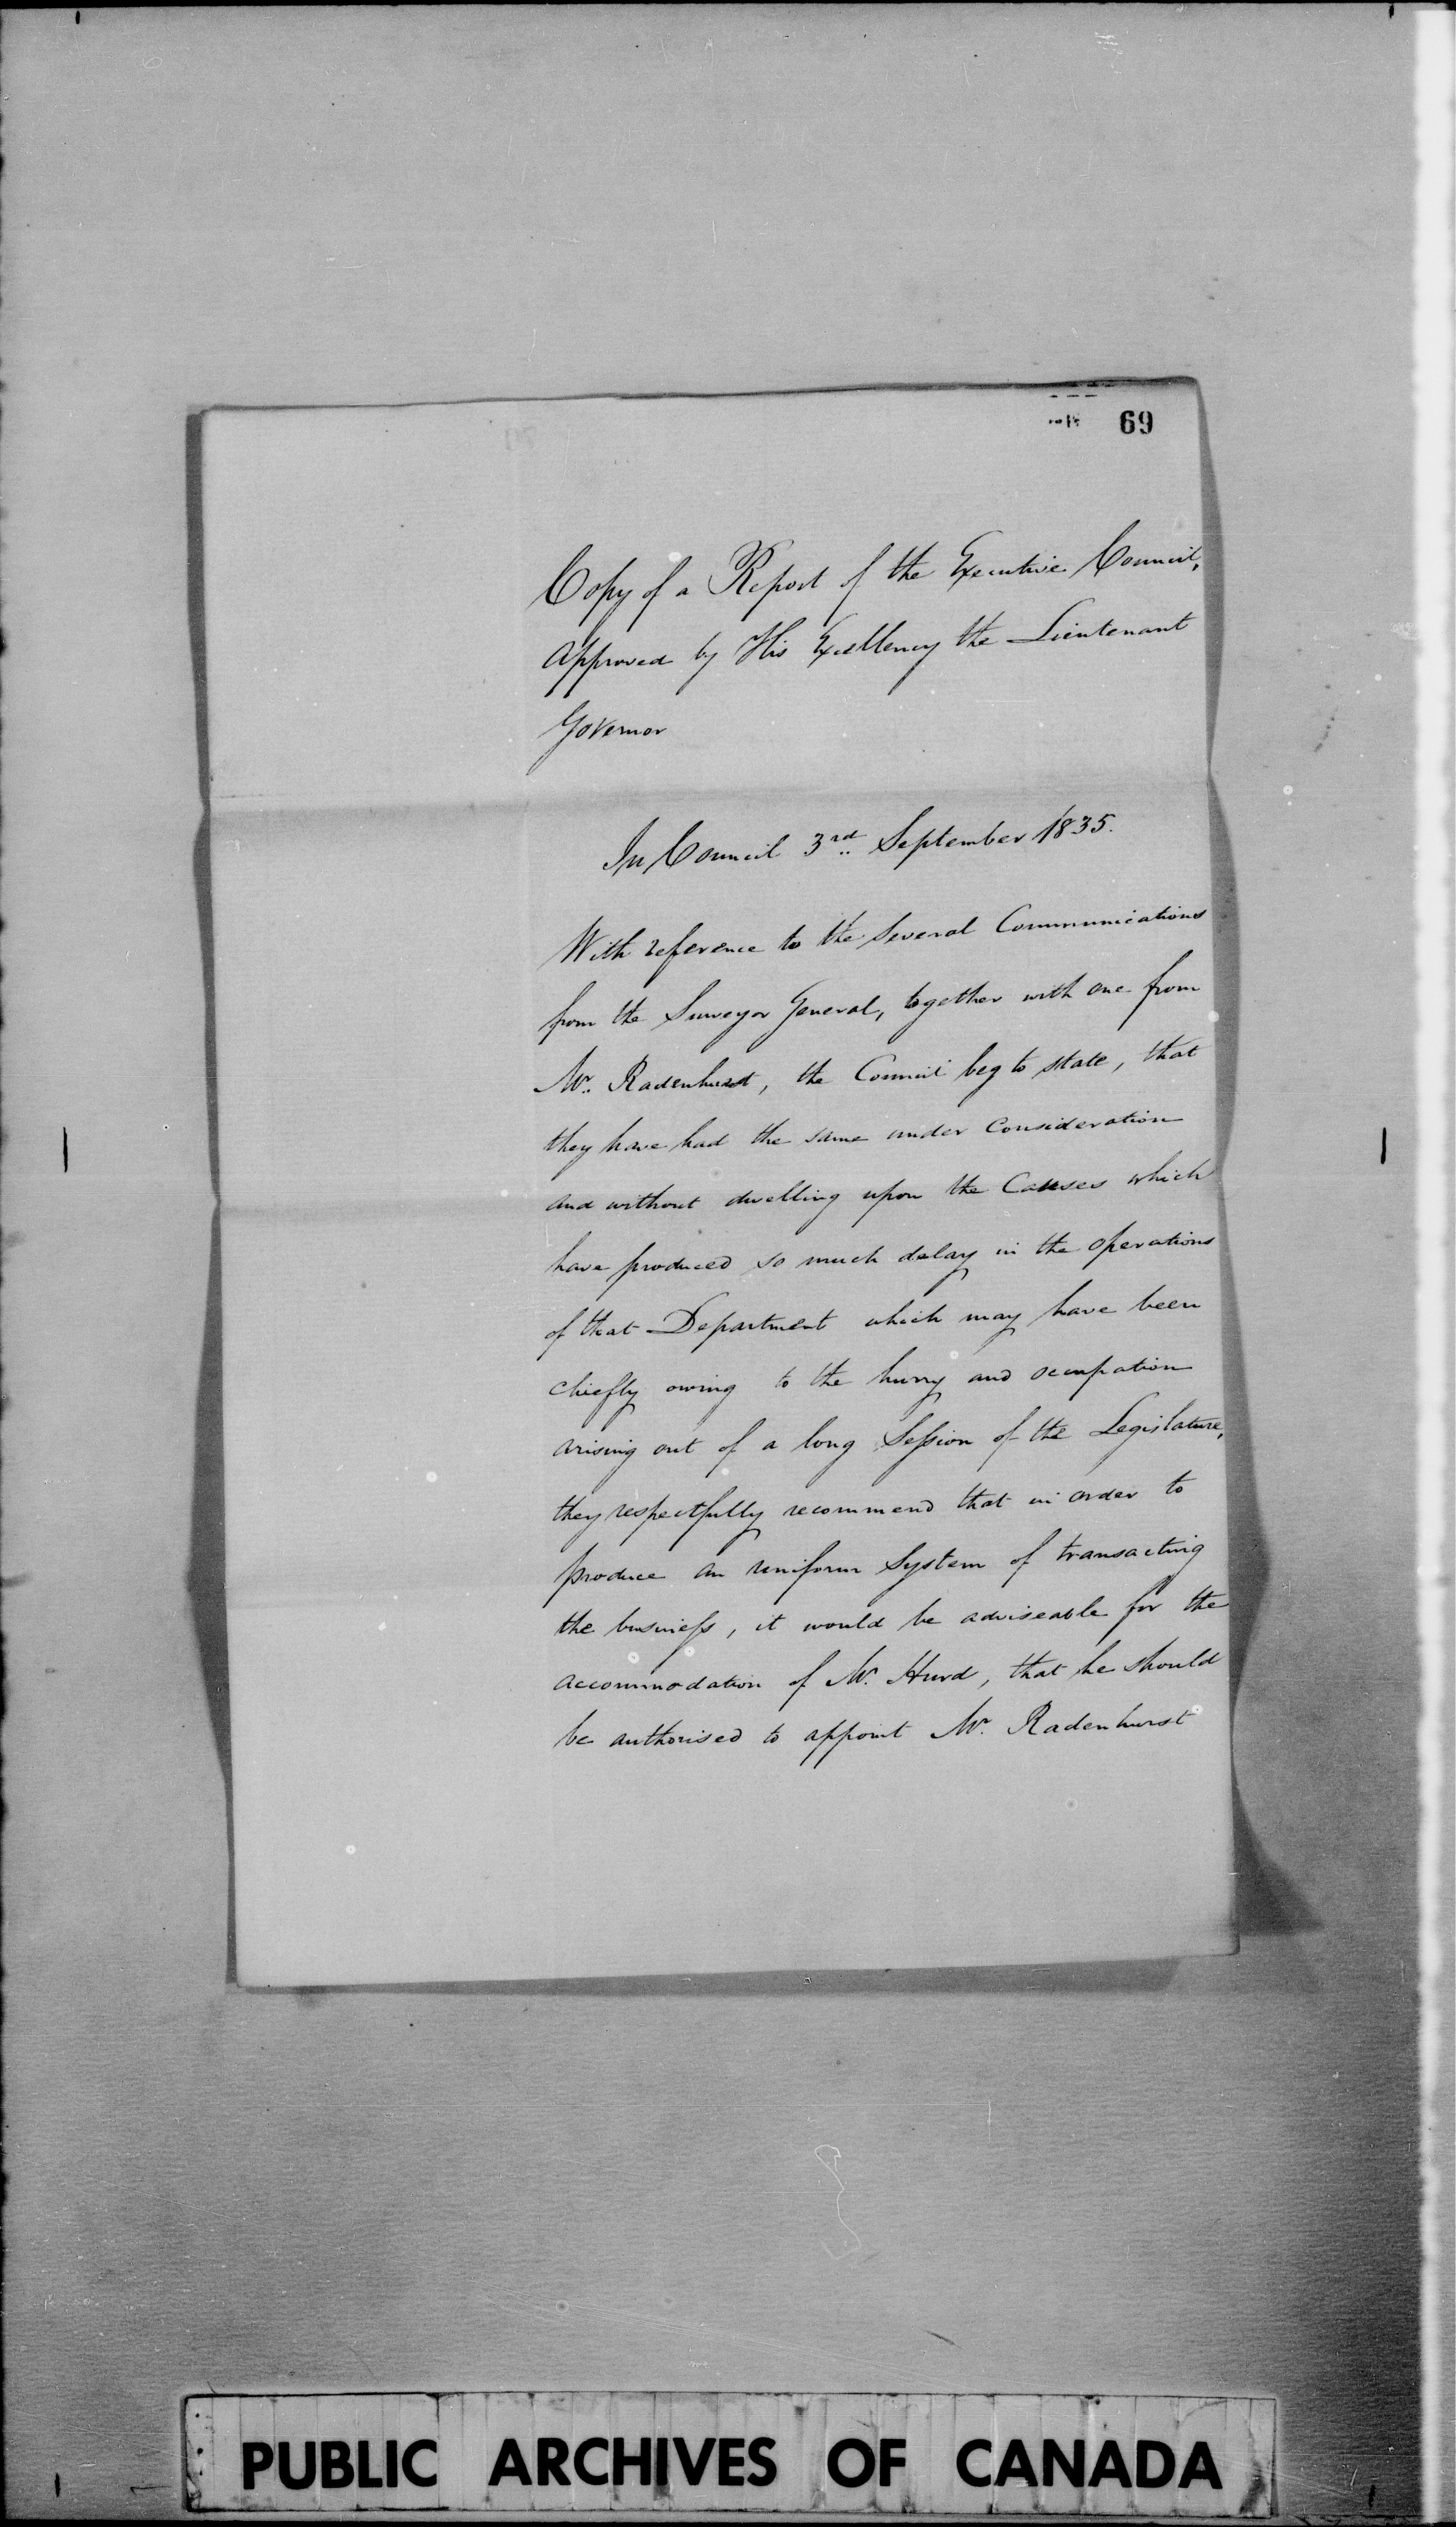 69
Copy of a Report of the Executive Council,
approved by His Excellency the Lieutenant
Governor
In Council 3rd September 1835.
With reference to the several Communications
from the Surveyor General, together with one from
Mr. Radenhurst, the Council beg to state, that
they have had the same under Consideration
and without dwelling upon the Causes which
have produced so much delay in the operations
of that Department which may have been
chiefly owing to the hurry and occupation
arising out of a long Session of the Legislature,
they respectfully recommend that in order to
produce an uniform System of transacting
the business, it would be adviseable for the
accommodation of Mr. Hurd, that he should
be authorised to appoint Mr. Radenhurst
PUBLIC ARCHIVES OF CANADA